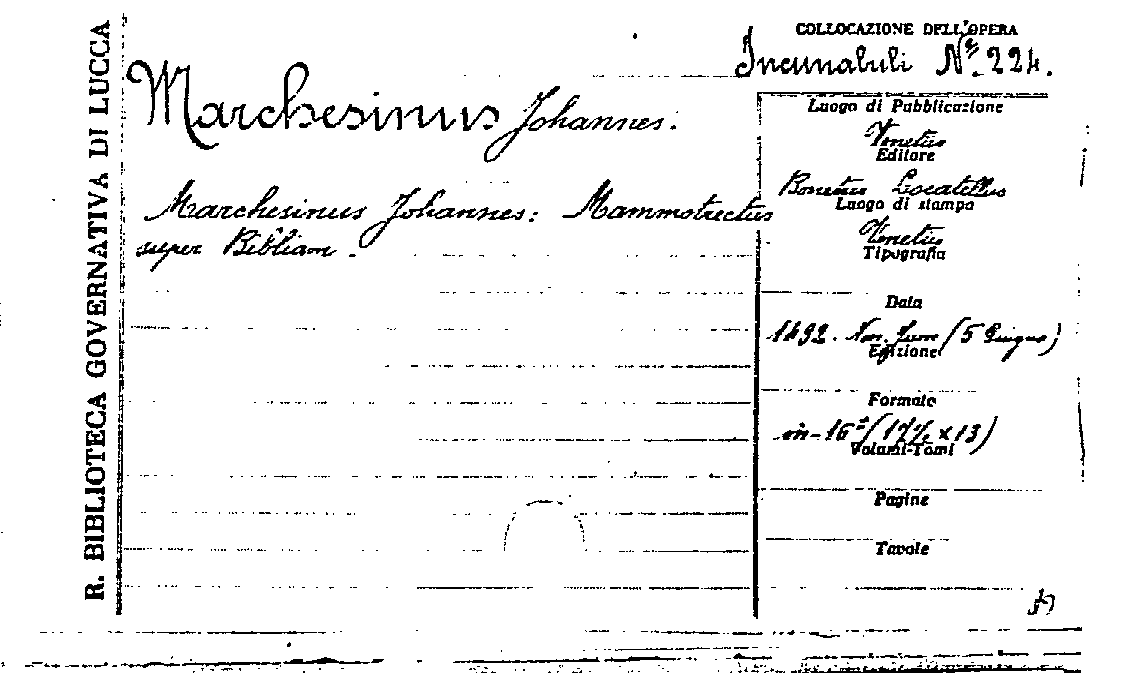 R. BIBLIOTECA GOVERNATIVA DI LUCCA
COLLOCAZIONE DELL'OPERA
Incunabuli Nº. 224.
Marchesinus Johannes.
Marchesinus Johannes: Mammotrectus
super Bibliam.
Luogo di Pubblicazione
Venetiis
Editore
Bonetus Locatellus
Luogo di stampa
Venetiis
Tipografia
Data
1492. Non. Jun (5 Giugno)
Edizione
Formato
in-16º (17½ x 13)
Volumi-Tomi
Pagine
Tavole